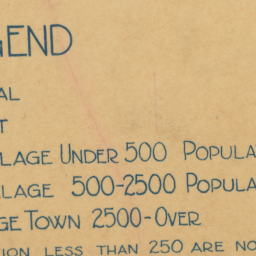 GEND
AL
T
LAGE UNDER 500 POPULA
LAGE 500-2500 POPULA
GE TOWN 2500-OVER
ION LESS THAN 250 ARE NO